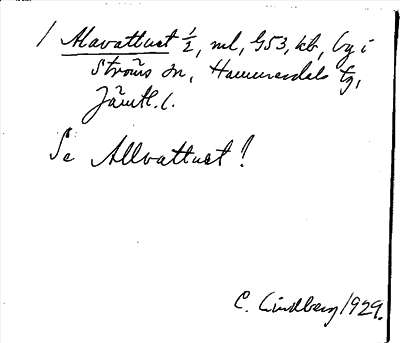 1 Alavattnet ½, ml, G53, kb, by i
Ströms sn, Hammerdals tg,
Jämtl. l.
Se Allvattnet!
C. Lindberg 1929.